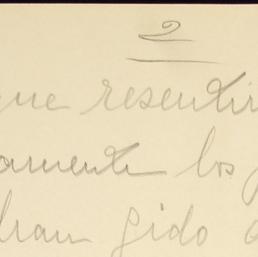 2
que resentir
amente los
gido